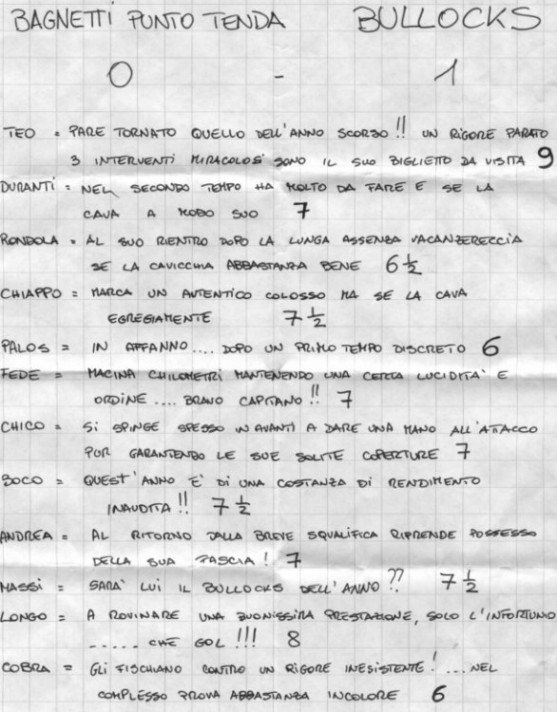 BAGNETTI PUNTO TENDA BULLOCKS
0 - 1
TEO = PARE TORNATO QUELLO DELL'ANNO SCORSO!! UN RIGORE PARATO
3 INTERVENTI MIRACOLOSI SONO IL SUO BIGLIETTO DA VISITA 9
DURANTI = NEL SECONDO TEMPO HA MOLTO DA FARE E SE LA
CAVA A MODO SUO 7
RONDOLA = AL SUO RIENTRO DOPO LA LUNGA ASSENZA VACANZERECCIA
SE LA CAVICCHIA ABBASTANZA BENE 6 1/2
CHIAPPO = MARCA UN AUTENTICO COLOSSO MA SE LA CAVA
EGREGIAMENTE 7 1/2
PALOS = IN AFFANNO.... DOPO UN PRIMO TEMPO DISCRETO 6
FEDE = MACINA CHILOMETRI MANTENENDO UNA CERTA LUCIDITA' E
ORDINE.... BRAVO CAPITANO!! 7
CHICO = SI SPINGE SPESSO IN AVANTI A DARE UNA MANO ALL'ATTACCO
PUR GARANTENDO LE SUE SOLITE COPERTURE 7
BOCO = QUEST'ANNO E' DI UNA COSTANZA DI RENDIMENTO
INAUDITA!! 7 1/2
ANDREA = AL RITORNO DALLA BREVE SQUALIFICA RIPRENDE POSSESSO
DELLA SUA FASCIA! 7
MASSI = SARA' LUI IL BULLOCKS DELL'ANNO?? 7 1/2
LONGO = A ROVINARE UNA BUONISSIMA PRESTAZIONE, SOLO L'INFORTUNIO
..... CHE GOL!!! 8
COBRA = GLI FISCHIANO CONTRO UN RIGORE INESISTENTE!.... NEL
COMPLESSO PROVA ABBASTANZA INCOLORE 6